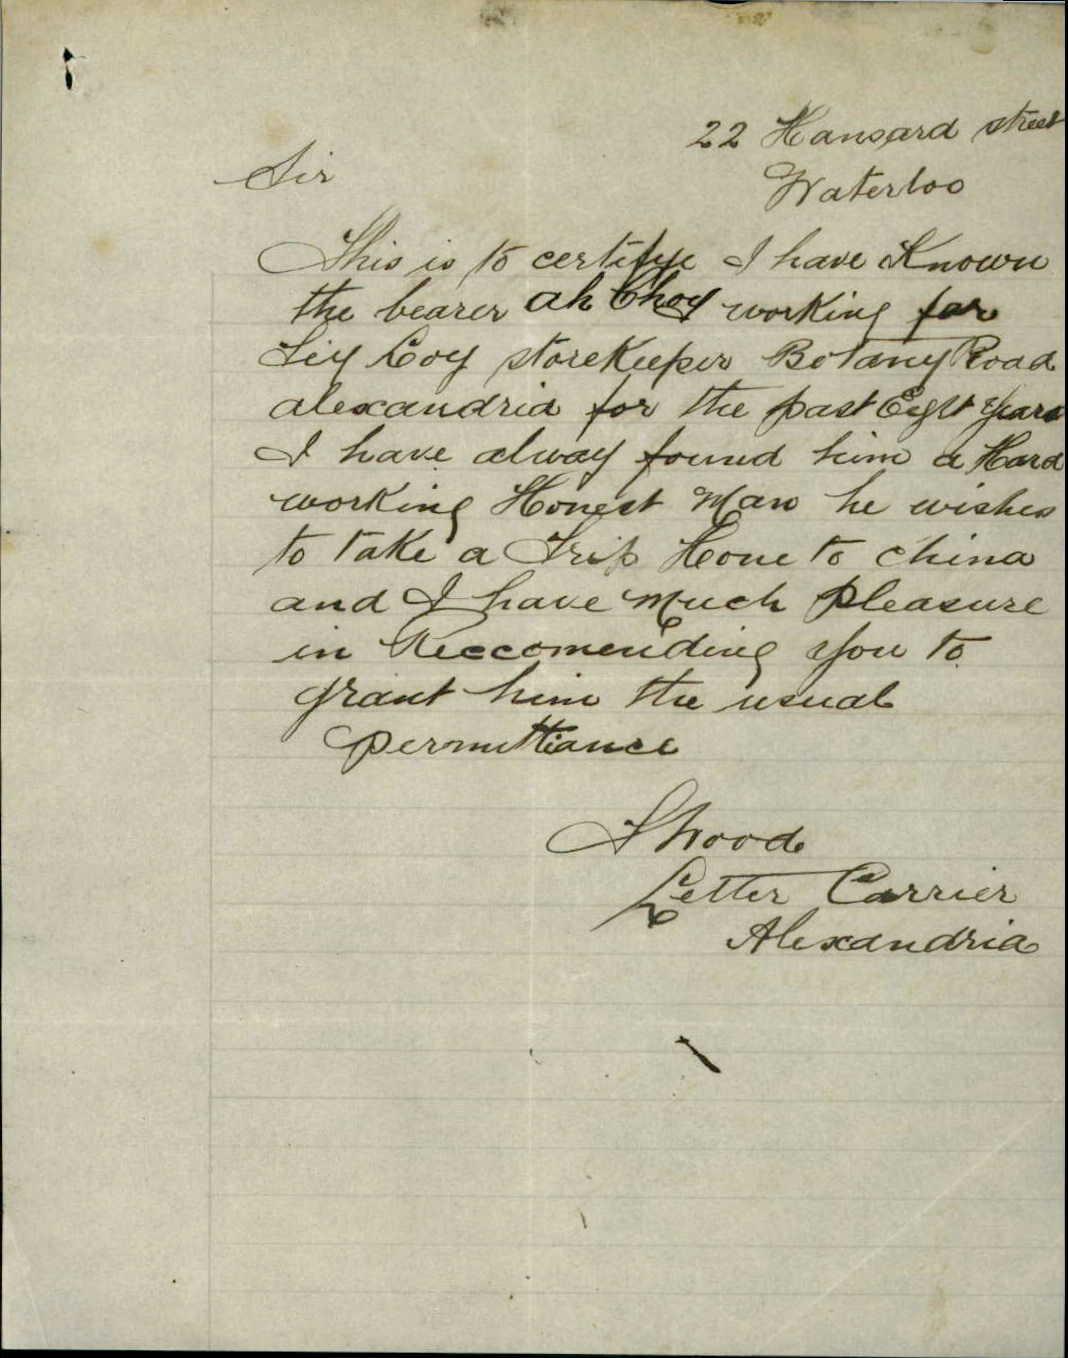 22 Hansard street
Waterloo
Sir
This is to certifye I have Known
the bearer ah Choy working for
Siy Coy storekeeper Botany Road
alexandria for the past Eight Years
I have alway found him a Hard
working Honest Man he wishes
to take a Trip Home to China
and I have Much Pleasure
in Reccomending You to
grant him the usual
permittiance
S Wood
Letter Carrier
Alexandria